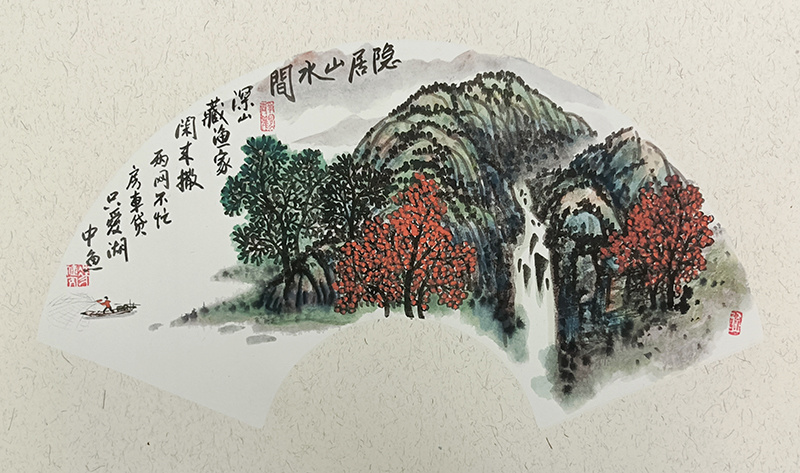 隐居山水間
深山
藏渔家
闲来撒
两网不忙
房車贷
只爱湖
中鱼